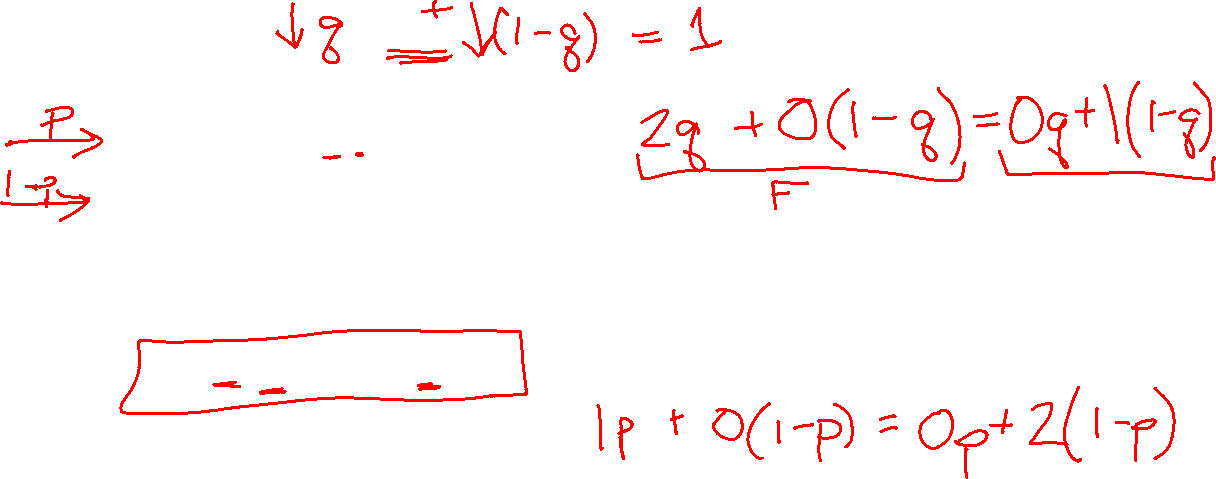 ↓q + ↓(1-q) = 1
p
2q + 0(1-q) = 0q + 1(1-q)
1-p
F
1p + 0(1-p) = 0p + 2(1-p)